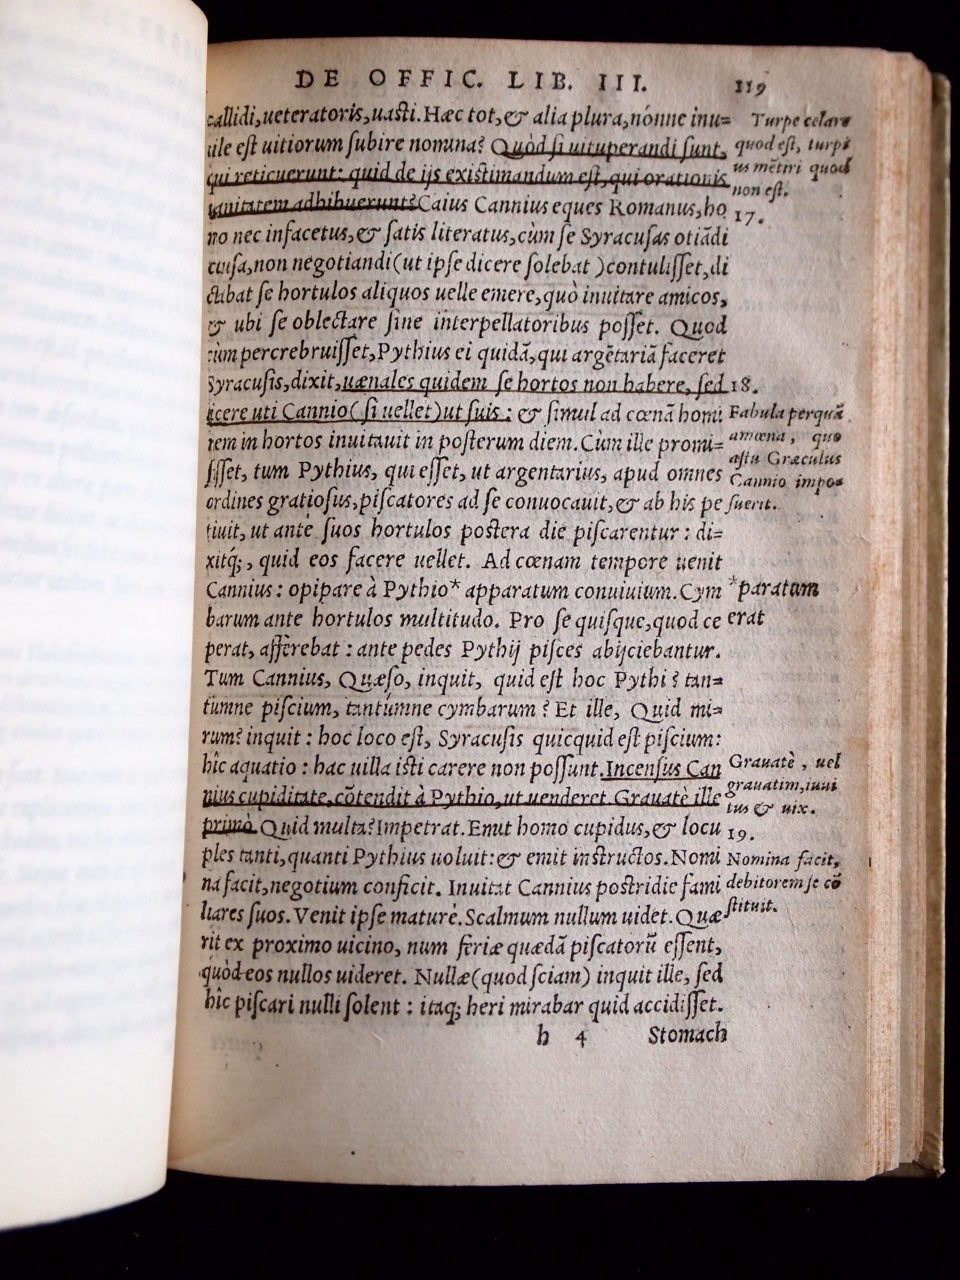 DE OFFIC. LIB. III. 119
callidi, ueteratoris, uasti. Hæc tot, & alia plura, nónne inu=
tile est uitiorum subire nomina? Quòd si uituperandi sunt,
qui reticuerunt: quid de ijs existimandum est, qui orationis
uanitatem adhibuerunt? Caius Cannius eques Romanus, ho
mo nec infacetus, & satis literatus, cùm se Syracusas otiãdi
causa, non negotiandi (ut ipse dicere solebat) contulisset, di
ctabat se hortulos aliquos uelle emere, quò inuitare amicos,
& ubi se oblectare sine interpellatoribus posset. Quod
cùm percrebruisset, Pythius ei quidã, qui argẽtariã faceret
Syracusis, dixit, uænales quidem se hortos non habere, sed
licere uti Cannio (si uellet) ut suis: & simul ad cœnã homi
nem in hortos inuitauit in posterum diem. Cùm ille promi=
sisset, tum Pythius, qui esset, ut argentarius, apud omnes
ordines gratiosus, piscatores ad se conuocauit, & ab his pe
tiuit, ut ante suos hortulos postera die piscarentur: di=
xitq́;, quid eos facere uellet. Ad cœnam tempore uenit
Cannius: opipare à Pythio* apparatum conuiuium. Cym
barum ante hortulos multitudo. Pro se quisque, quod ce
perat, afferebat: ante pedes Pythij pisces abijciebantur.
Tum Cannius, Quæso, inquit, quid est hoc Pythi? tan=
túmne piscium, tantúmne cymbarum? Et ille, Quid mi=
rum? inquit: hoc loco est, Syracusis quicquid est piscium:
hîc aquatio: hac uilla isti carere non possunt. Incensus Can
nius cupiditate, cõtendit à Pythio, ut uenderet. Grauatè ille
primò. Quid multa? Impetrat. Emit homo cupidus, & locu
ples tanti, quanti Pythius uoluit: & emit instructos. Nomi
na facit, negotium conficit. Inuitat Cannius postridie fami
liares suos. Venit ipse maturè. Scalmum nullum uidet. Quæ
rit ex proximo uicino, num feriæ quædã piscatorũ essent,
quòd eos nullos uideret. Nullæ (quod sciam) inquit ille, sed
hîc piscari nulli solent: itaq; heri mirabar quid accidisset.
h 4 Stomach
Turpe celare
quod est, turpi
us mẽtiri quod
non est.
17.
18.
Fabula perquã
amœna, quo
astu Græculus
Cannio impo=
suerit.
*paratum
erat
Grauatè, uel
grauatim, inui
tus & uix.
19.
Nomina facit,
debitorem se cõ
stituit.